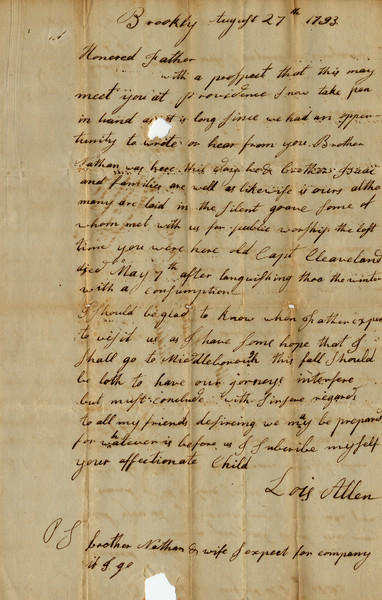 Brookly August 27th 1793
Honered Father
with a prospect that this may
meet you at Providence I now take pen
in hand as it is long since we had an oppor-
tunity to wrote or hear from you Brother
Nathan was here this day he & brother
and families are well as likewise is ours altho
many are laid in the silent grave some of
whom met with us for public worship the last
time you were here old Capt Cleaveland
died May 7th after languishing thro the winter
with a consumption
I should be glad to know when Father expects
to visit us as I have some hope that I
shall go to Middleborough this fall should
be loth to have our jorneys interfere
but must conclude with Sinsere regards
to all my friends desireing we may be prepared
for whatever is before us I Subcribe myself
your affectionate Child
Lois Allen
P S brother Nathan & wife I expect for company
if I go